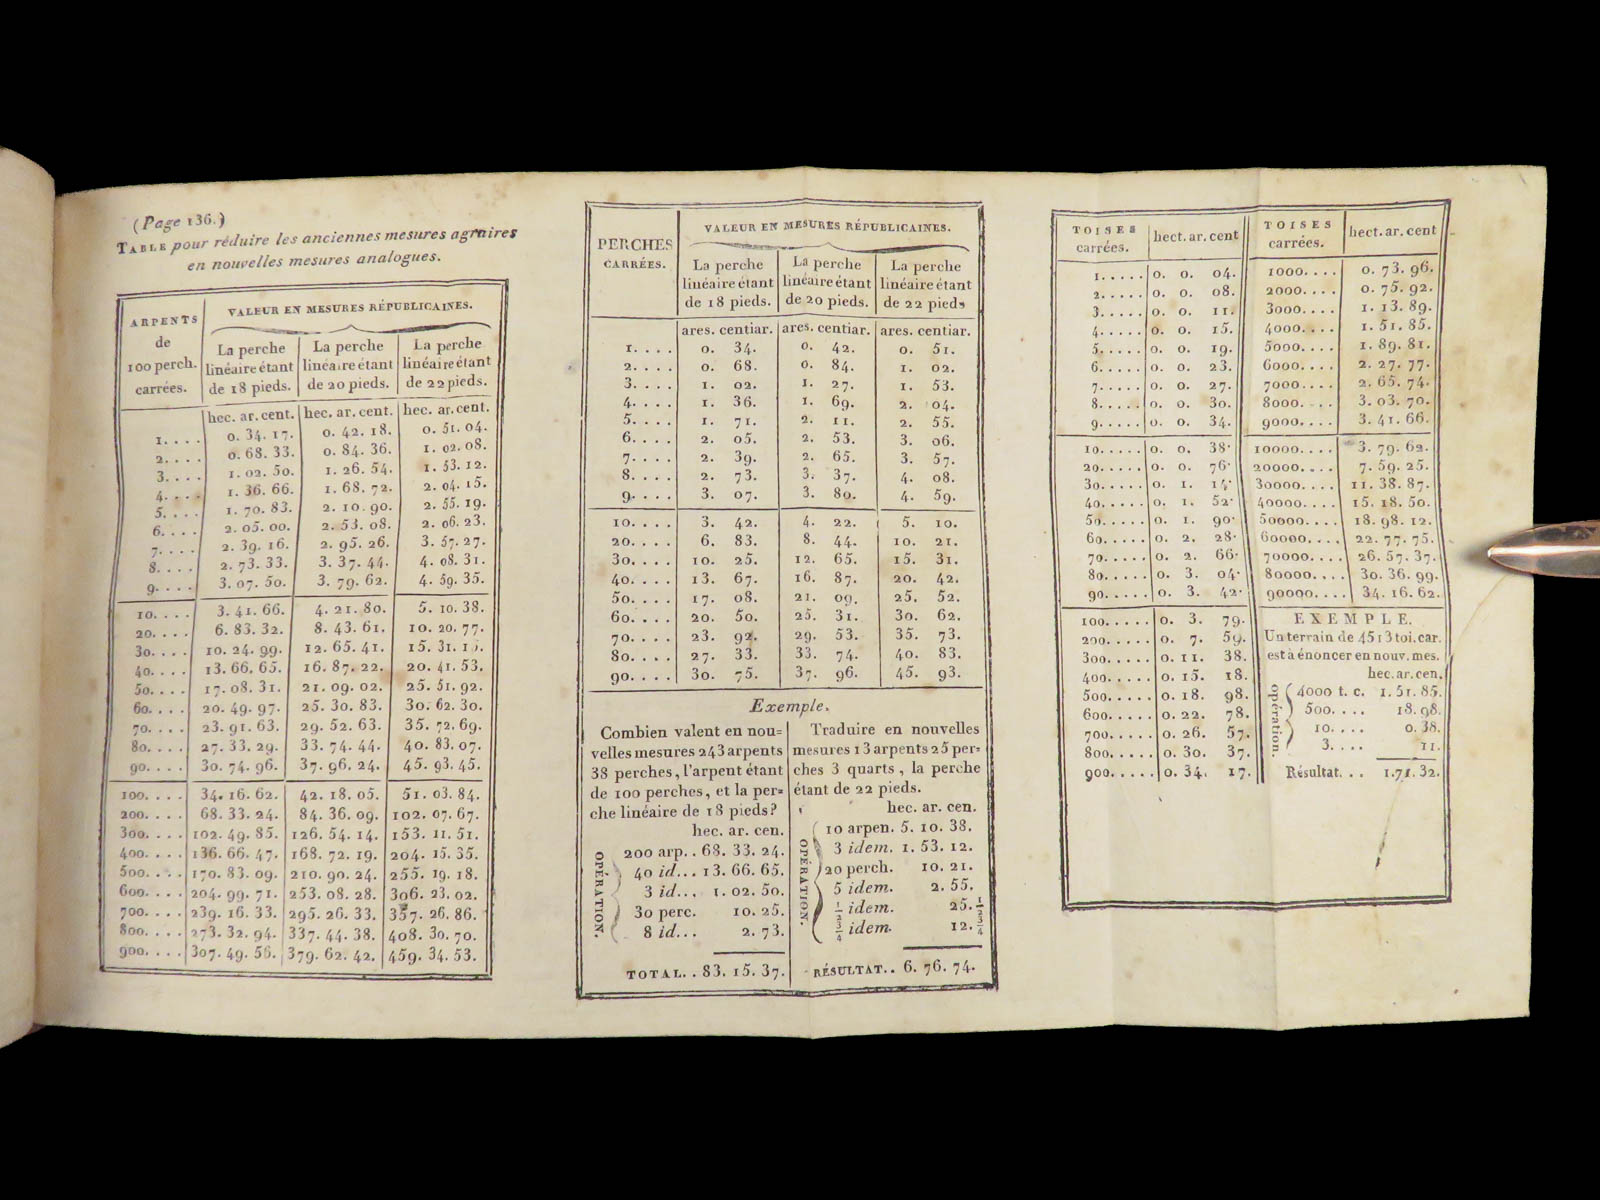 (Page 136.)
TABLE pour réduire les anciennes mesures agraires
en nouvelles mesures analogues.
ARPENTS de 100 perch. carrées.
VALEUR EN MESURES RÉPUBLICAINES.
La perche linéaire étant de 18 pieds. La perche linéaire étant de 20 pieds. La perche linéaire étant de 22 pieds.
hec. ar. cent. hec. ar. cent. hec. ar. cent.
1.... 0. 34. 17. 0. 42. 18. 0. 51. 04.
2.... 0. 68. 33. 0. 84. 36. 1. 02. 08.
3.... 1. 02. 50. 1. 26. 54. 1. 53. 12.
4.... 1. 36. 66. 1. 68. 72. 2. 04. 15.
5.... 1. 70. 83. 2. 10. 90. 2. 55. 19.
6.... 2. 05. 00. 2. 53. 08. 2. 06. 23.
7.... 2. 39. 16. 2. 95. 26. 3. 57. 27.
8.... 2. 73. 33. 3. 37. 44. 4. 08. 31.
9.... 3. 07. 50. 3. 79. 62. 4. 59. 35.
10.... 3. 41. 66. 4. 21. 80. 5. 10. 38.
20.... 6. 83. 32. 8. 43. 61. 10. 20. 77.
30.... 10. 24. 99. 12. 65. 41. 15. 31. 15.
40.... 13. 66. 65. 16. 87. 22. 20. 41. 53.
50.... 17. 08. 31. 21. 09. 02. 25. 51. 92.
60.... 20. 49. 97. 25. 30. 83. 30. 62. 30.
70.... 23. 91. 63. 29. 52. 63. 35. 72. 69.
80.... 27. 33. 29. 33. 74. 44. 40. 83. 07.
90.... 30. 74. 96. 37. 96. 24. 45. 93. 45.
100.... 34. 16. 62. 42. 18. 05. 51. 03. 84.
200.... 68. 33. 24. 84. 36. 09. 102. 07. 67.
300.... 102. 49. 85. 126. 54. 14. 153. 11. 51.
400.... 136. 66. 47. 168. 72. 19. 204. 15. 35.
500.... 170. 83. 09. 210. 90. 24. 255. 19. 18.
600.... 204. 99. 71. 253. 08. 28. 306. 23. 02.
700.... 239. 16. 33. 295. 26. 33. 357. 26. 86.
800.... 273. 32. 94. 337. 44. 38. 408. 30. 70.
900.... 307. 49. 56. 379. 62. 42. 459. 34. 53.
PERCHES CARRÉES.
VALEUR EN MESURES RÉPUBLICAINES.
La perche linéaire étant de 18 pieds. La perche linéaire étant de 20 pieds. La perche linéaire étant de 22 pieds
ares. centiar. ares. centiar. ares. centiar.
1.... 0. 34. 0. 42. 0. 51.
2.... 0. 68. 0. 84. 1. 02.
3.... 1. 02. 1. 27. 1. 53.
4.... 1. 36. 1. 69. 2. 04.
5.... 1. 71. 2. 11. 2. 55.
6.... 2. 05. 2. 53. 3. 06.
7.... 2. 39. 2. 65. 3. 57.
8.... 2. 73. 3. 37. 4. 08.
9.... 3. 07. 3. 80. 4. 59.
10.... 3. 42. 4. 22. 5. 10.
20.... 6. 83. 8. 44. 10. 21.
30.... 10. 25. 12. 65. 15. 31.
40.... 13. 67. 16. 87. 20. 42.
50.... 17. 08. 21. 09. 25. 52.
60.... 20. 50. 25. 31. 30. 62.
70.... 23. 92. 29. 53. 35. 73.
80.... 27. 33. 33. 74. 40. 83.
90.... 30. 75. 37. 96. 45. 93.
Exemple.
Combien valent en nou=
velles mesures 243 arpents
38 perches, l'arpent étant
de 100 perches, et la per=
che linéaire de 18 pieds?
hec. ar. cen.
OPÉRATION.
200 arp.. 68. 33. 24.
40 id... 13. 66. 65.
3 id... 1. 02. 50.
30 perc. 10. 25.
8 id... 2. 73.
TOTAL.. 83. 15. 37.
Traduire en nouvelles
mesures 13 arpents 25 per=
ches 3 quarts, la perche
étant de 22 pieds.
hec. ar. cen.
OPÉRATION.
10 arpen. 5. 10. 38.
3 idem. 1. 53. 12.
20 perch. 10. 21.
5 idem. 2. 55.
1/2 idem. 25. 1/2
3/4 idem. 12. 3/4
RÉSULTAT.. 6. 76. 74.
TOISES carrées. hect. ar. cent
1..... 0. 0. 04.
2..... 0. 0. 08.
3..... 0. 0. 11.
4..... 0. 0. 15.
5..... 0. 0. 19.
6..... 0. 0. 23.
7..... 0. 0. 27.
8..... 0. 0. 30.
9..... 0. 0. 34.
10..... 0. 0. 38.
20..... 0. 0. 76.
30..... 0. 1. 14.
40..... 0. 1. 52.
50..... 0. 1. 90.
60..... 0. 2. 28.
70..... 0. 2. 66.
80..... 0. 3. 04.
90..... 0. 3. 42.
100..... 0. 3. 79.
200..... 0. 7. 59.
300..... 0. 11. 38.
400..... 0. 15. 18.
500..... 0. 18. 98.
600..... 0. 22. 78.
700..... 0. 26. 57.
800..... 0. 30. 37.
900..... 0. 34. 17.
TOISES carrées. hect. ar. cent
1000.... 0. 73. 96.
2000.... 0. 75. 92.
3000.... 1. 13. 89.
4000.... 1. 51. 85.
5000.... 1. 89. 81.
6000.... 2. 27. 77.
7000.... 2. 65. 74.
8000.... 3. 03. 70.
9000.... 3. 41. 66.
10000.... 3. 79. 62.
20000.... 7. 59. 25.
30000.... 11. 38. 87.
40000.... 15. 18. 50.
50000.... 18. 98. 12.
60000.... 22. 77. 75.
70000.... 26. 57. 37.
80000.... 30. 36. 99.
90000.... 34. 16. 62.
EXEMPLE.
Un terrain de 4513 toi. car.
est à énoncer en nouv. mes.
hec. ar. cen.
opération.
4000 t. c. 1. 51. 85.
500.... 18. 98.
10.... 0. 38.
3.... 11.
Résultat... 1. 71. 32.